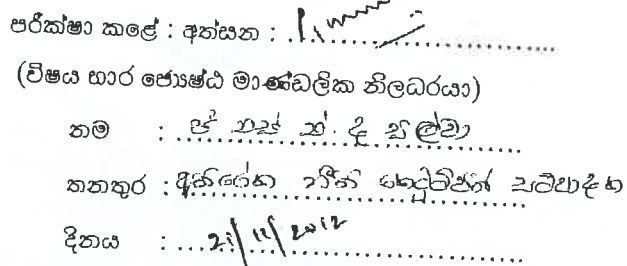 පරීක්ෂා කළේ : අත්සන :
(විෂය භාර ජ්‍යෙෂ්ඨ මාණ්ඩලික නිලධරයා)
නම : ද සිල්වා
තනතුර : අතිරේක නීති කෙටුම්පත් සම්පාදක
දිනය : 21/11/2012